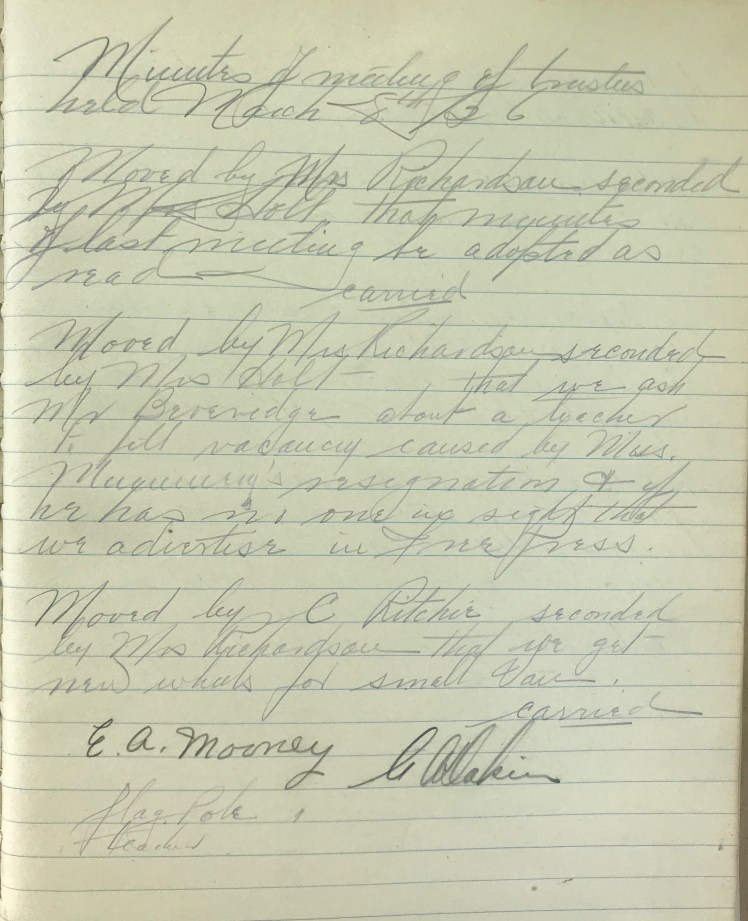 Minutes of meeting of trustees
held March 8th / 26
Moved by Mrs Richardson seconded
by Mrs Holt that minutes
of last meeting be adopted as
read
carried
Moved by Mrs Richardson seconded
by Mrs Holt - that we ask
Mr Beveridge about a teacher
to fill vacancy caused by Miss.
resignation & if
he has no one in sight that
we advertise in Free Press.
Moved by C Ritchie seconded
by Mrs Richardson that we get
new wheels for small Van.
carried
E. A. Mooney
Flag. Pole